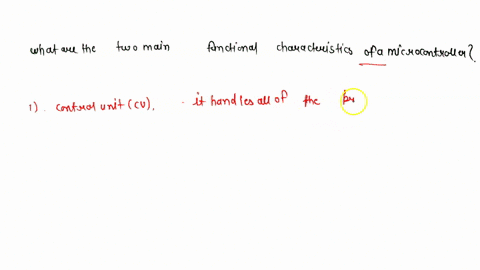 what are the two main functional characteristics of a microcontroller?
1) control unit (CU), . it handles all of the pr